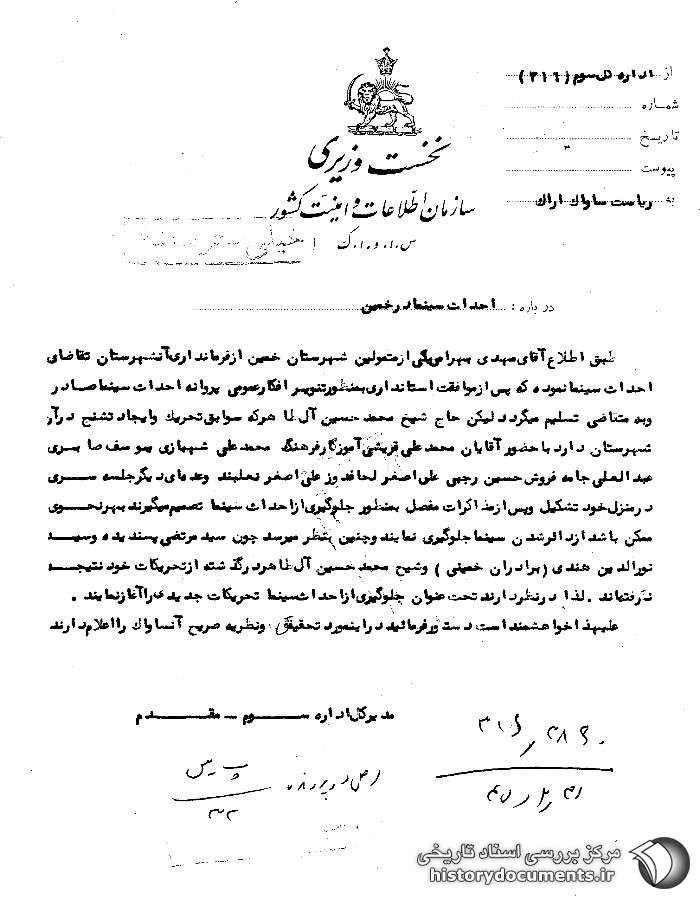 از اداره کل سوم (۳۱۶)
شماره
تاریخ
پیوست
به ریاست ساواک اراک
نخست وزیری
سازمان اطلاعات و امنیت کشور
س.ا.و.ا.ک
خیلی محرمانه
درباره : احداث سینما در خمین
طبق اطلاع آقای مهدی بهرامی یکی از متمولین شهرستان خمین از فرمانداری آنشهرستان تقاضای
احداث سینما نموده که پس از موافقت استانداری بمنظور تنویر افکار عمومی پروانه احداث سینما صادر
وبه متقاضی تسلیم میگردد لیکن حاج شیخ محمد حسین آل طاها که سوابق تحریک وایجاد تشنج در آن
شهرستان دارد با حضور آقایان محمد علی قریشی آموزگار فرهنگ محمد علی شهبازی یوسف صابری
عبدالعلی جامه فروش حسین رجبی علی اصغر لحافدوز علی اصغر نعلبند وعده‌ای دیگر جلسه سری
در منزل خود تشکیل وپس از مذاکرات مفصل بمنظور جلوگیری از احداث سینما تصمیم میگیرند بهر نحوی
ممکن باشد از دائر شدن سینما جلوگیری نمایند وچنین بنظر میرسد چون سید مرتضی پسندیده وسید
نورالدین هندی (برادران خمینی) وشیخ محمد حسین آل طاها در گذشته از تحریکات خود نتیجه
نگرفته‌اند . لذا در نظر دارند تحت عنوان جلوگیری از احداث سینما تحریکات جدیدی را آغاز نمایند .
علیهذا خواهشمند است دستور فرمائید در اینمورد تحقیق ونظریه صریح آنساواک را اعلام دارند
مدیرکل اداره سوم - مقدم
اصل در پرونده
مرکز بررسی اسناد تاریخی
historydocuments.ir